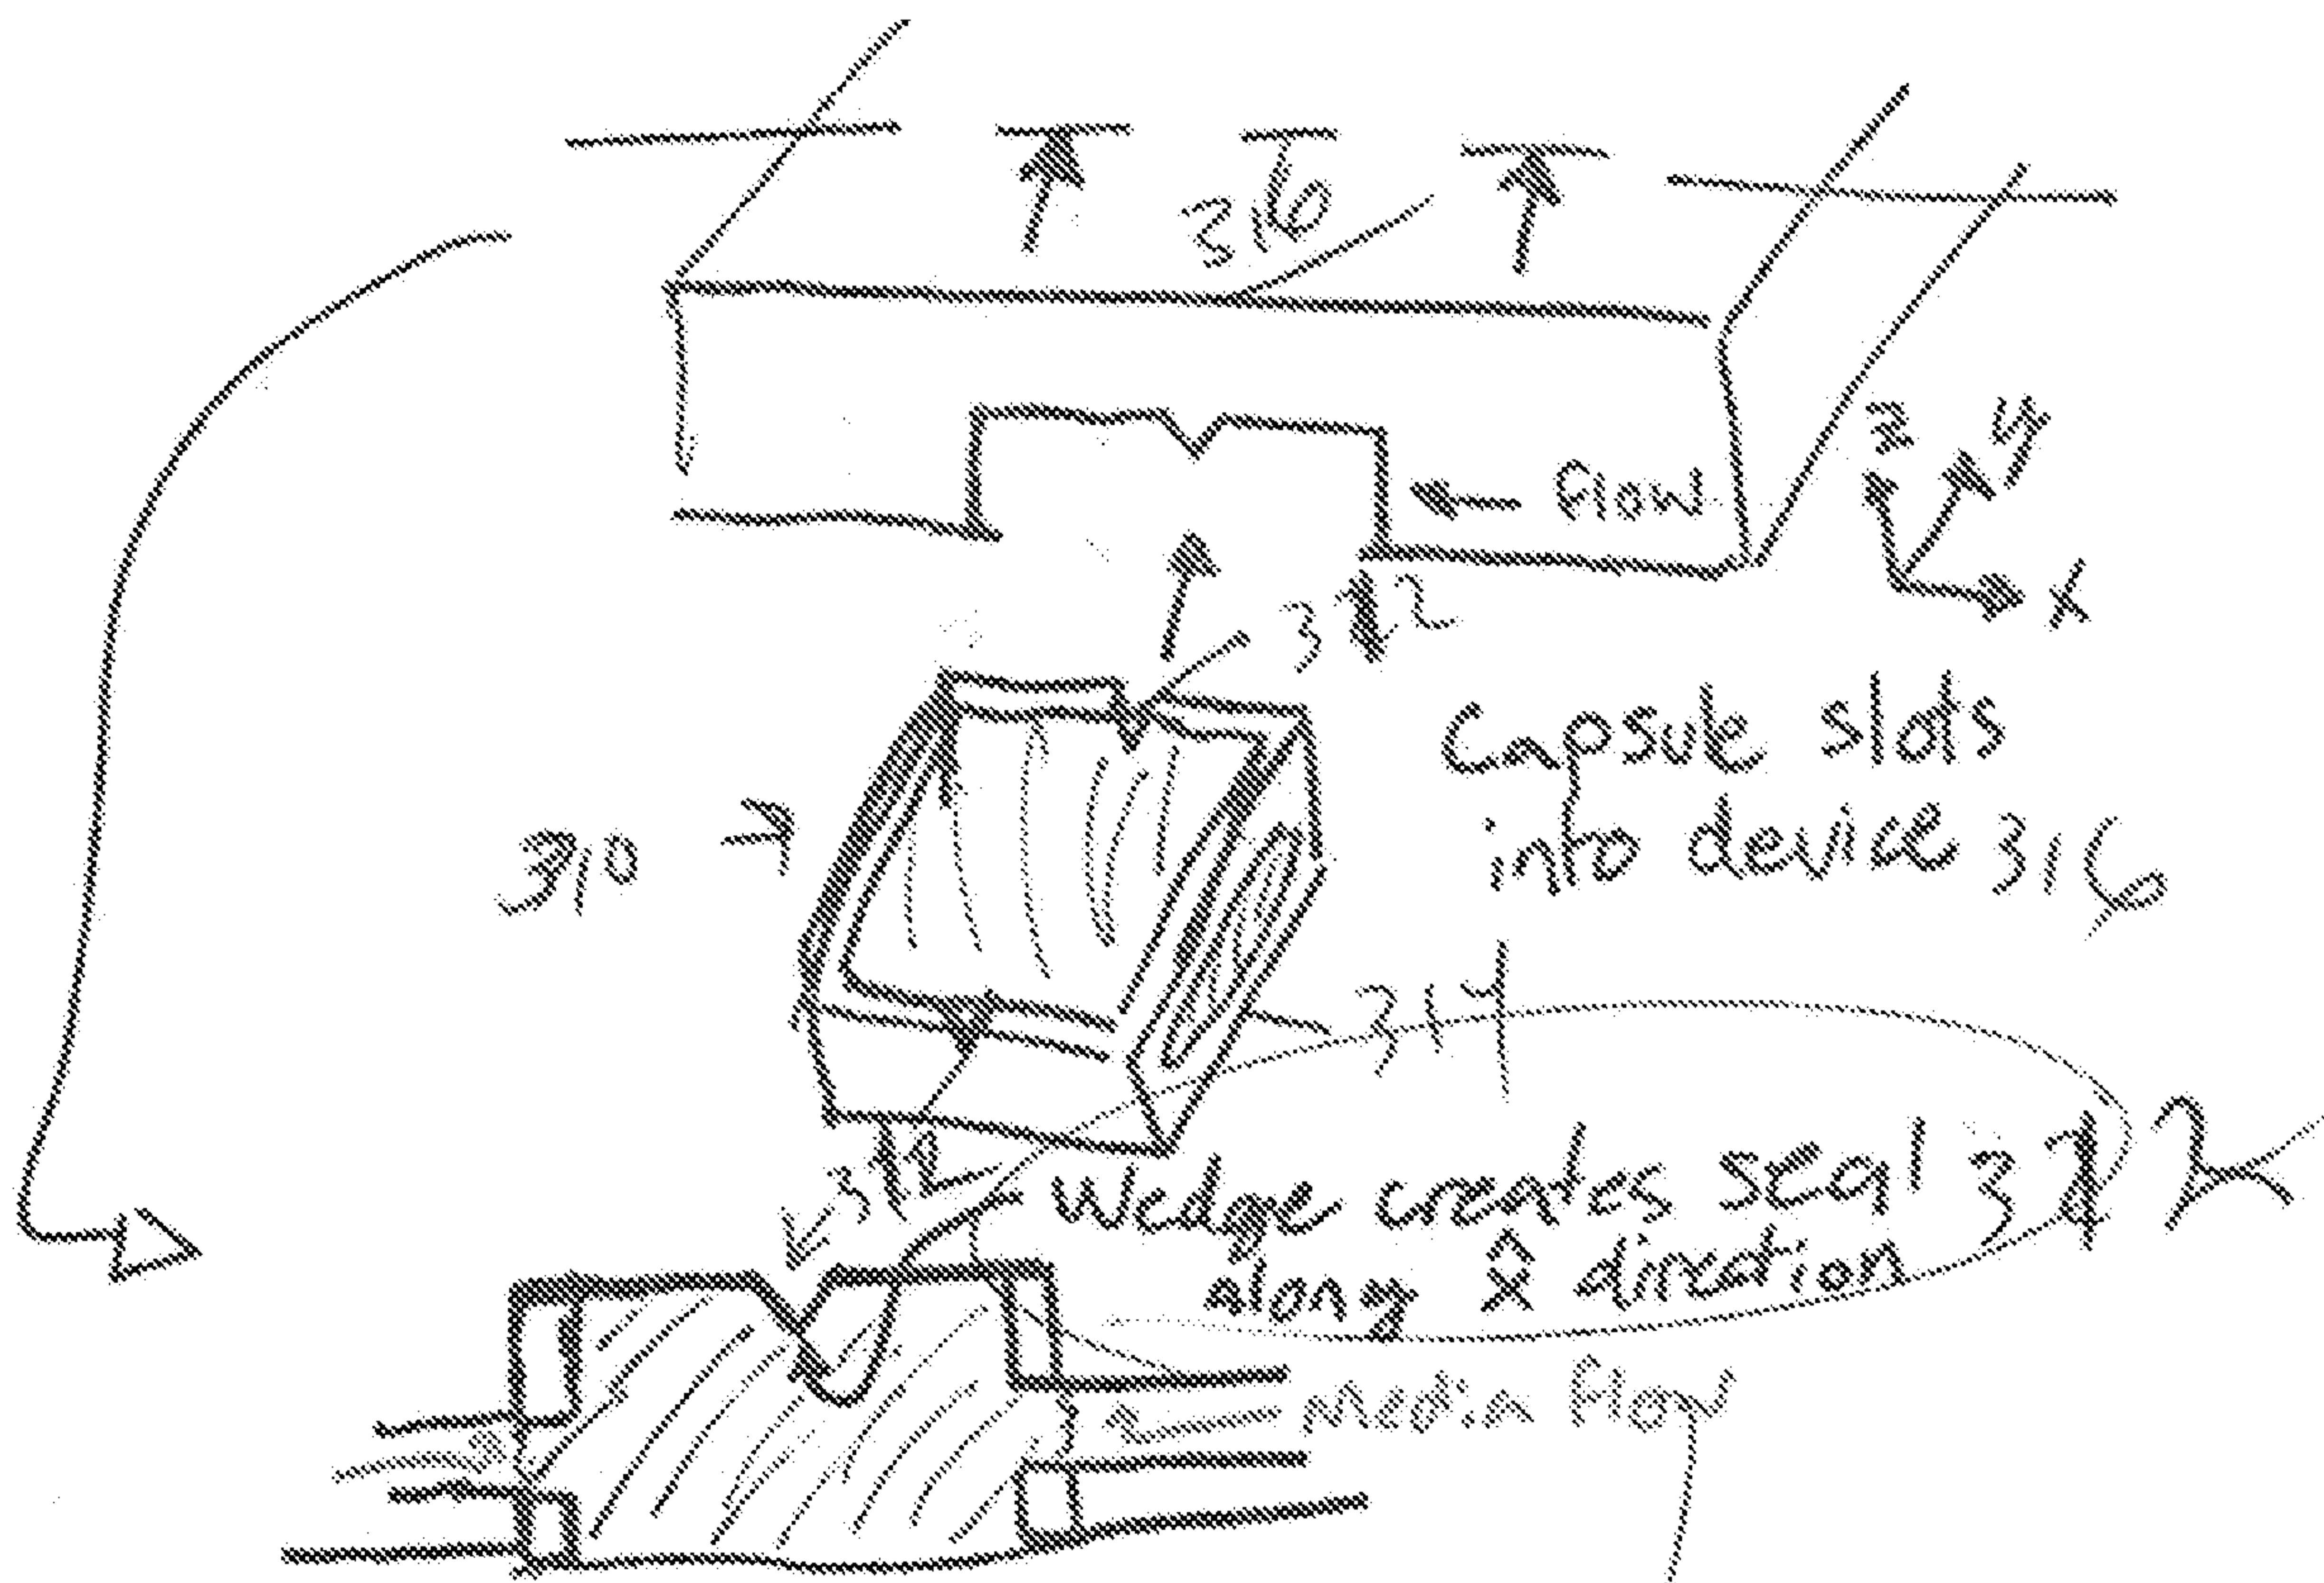 316
Flow
z
y
x
312
Capsule slots
into device 316
310
314
312
Wedge creates seal 312
along x̂ direction
Media Flow